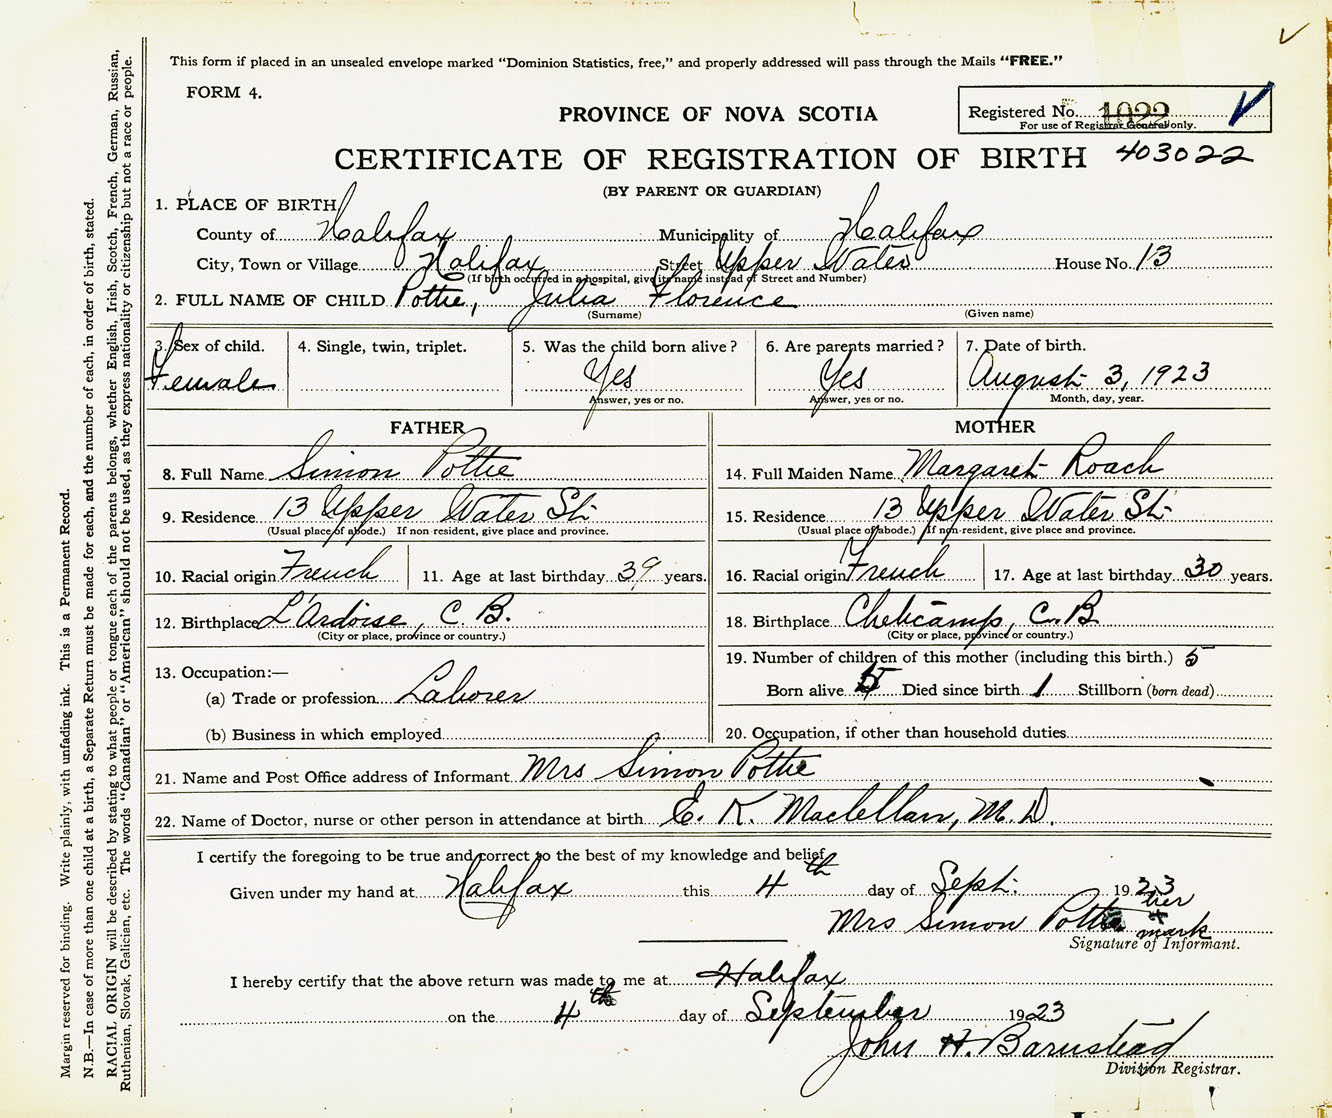 This form if placed in an unsealed envelope marked "Dominion Statistics, free," and properly addressed will pass through the Mails "FREE."
FORM 4.
PROVINCE OF NOVA SCOTIA
Registered No. 1922
For use of Registrar General only.
CERTIFICATE OF REGISTRATION OF BIRTH 403022
(BY PARENT OR GUARDIAN)
1. PLACE OF BIRTH
County of Halifax Municipality of Halifax
City, Town or Village Halifax Street Upper Water House No. 13
(If birth occurred in a hospital, give its name instead of Street and Number)
2. FULL NAME OF CHILD Pottie, Julia Florence
(Surname) (Given name)
3. Sex of child. 4. Single, twin, triplet. 5. Was the child born alive? 6. Are parents married? 7. Date of birth.
Female Yes Yes August 3, 1923
Answer, yes or no. Answer, yes or no. Month, day, year.
FATHER MOTHER
8. Full Name Simon Pottie 14. Full Maiden Name Margaret Roach
9. Residence 13 Upper Water St. 15. Residence 13 Upper Water St.
(Usual place of abode.) If non-resident, give place and province. (Usual place of abode.) If non-resident, give place and province.
10. Racial origin French 11. Age at last birthday 39 years. 16. Racial origin French 17. Age at last birthday 30 years.
12. Birthplace L'Ardoise, C. B. 18. Birthplace Cheticamp, C. B
(City or place, province or country.) (City or place, province or country.)
13. Occupation:— 19. Number of children of this mother (including this birth.) 5
(a) Trade or profession Laborer Born alive 5 Died since birth 1 Stillborn (born dead)
(b) Business in which employed 20. Occupation, if other than household duties
21. Name and Post Office address of Informant Mrs Simon Pottie
22. Name of Doctor, nurse or other person in attendance at birth E. K. Maclellan, M. D.
I certify the foregoing to be true and correct to the best of my knowledge and belief
Given under my hand at Halifax this 4th day of Sept. 1923
Mrs Simon Pottie her x mark
Signature of Informant.
I hereby certify that the above return was made to me at Halifax
on the 4th day of September 1923
John H. Barnstead
Division Registrar.
Margin reserved for binding. Write plainly, with unfading ink. This is a Permanent Record.
N.B.—In case of more than one child at a birth, a Separate Return must be made for each, and the number of each, in order of birth, stated.
RACIAL ORIGIN will be described by stating to what people or tongue each of the parents belongs, whether English, Irish, Scotch, French, German, Russian,
Ruthenian, Slovak, Galician, etc. The words "Canadian" or "American" should not be used, as they express nationality or citizenship but not a race or people.